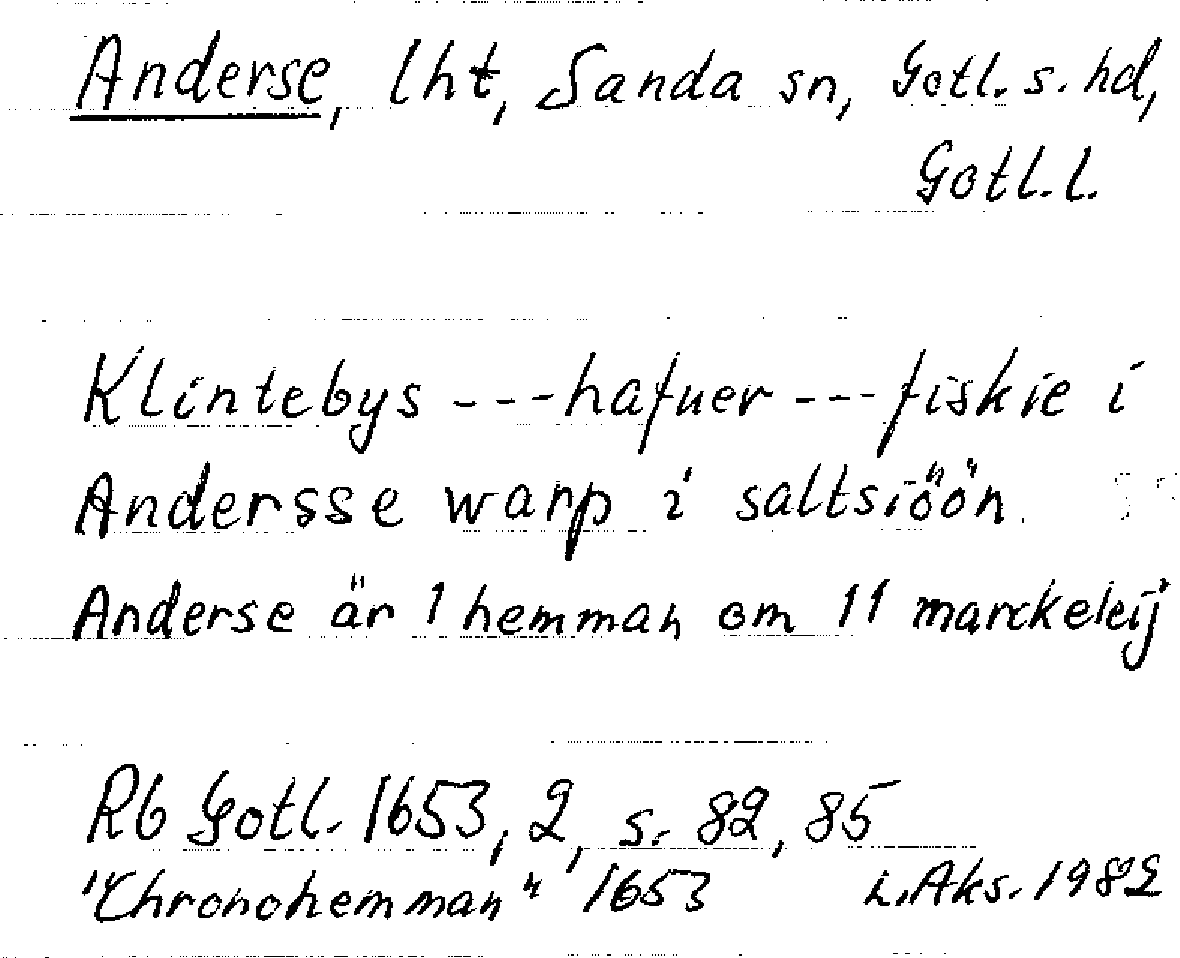 Anderse, lht, Sanda sn, Gotl. s. hd,
Gotl. l.
Klintebys --- hafuer --- fiskie i
Andersse warp i saltsiöön.
Anderse är 1 hemman om 11 marckeleij
Rb Gotl. 1653, 2, s. 82, 85
"Chronohemman" 1653 L. Aks. 1982